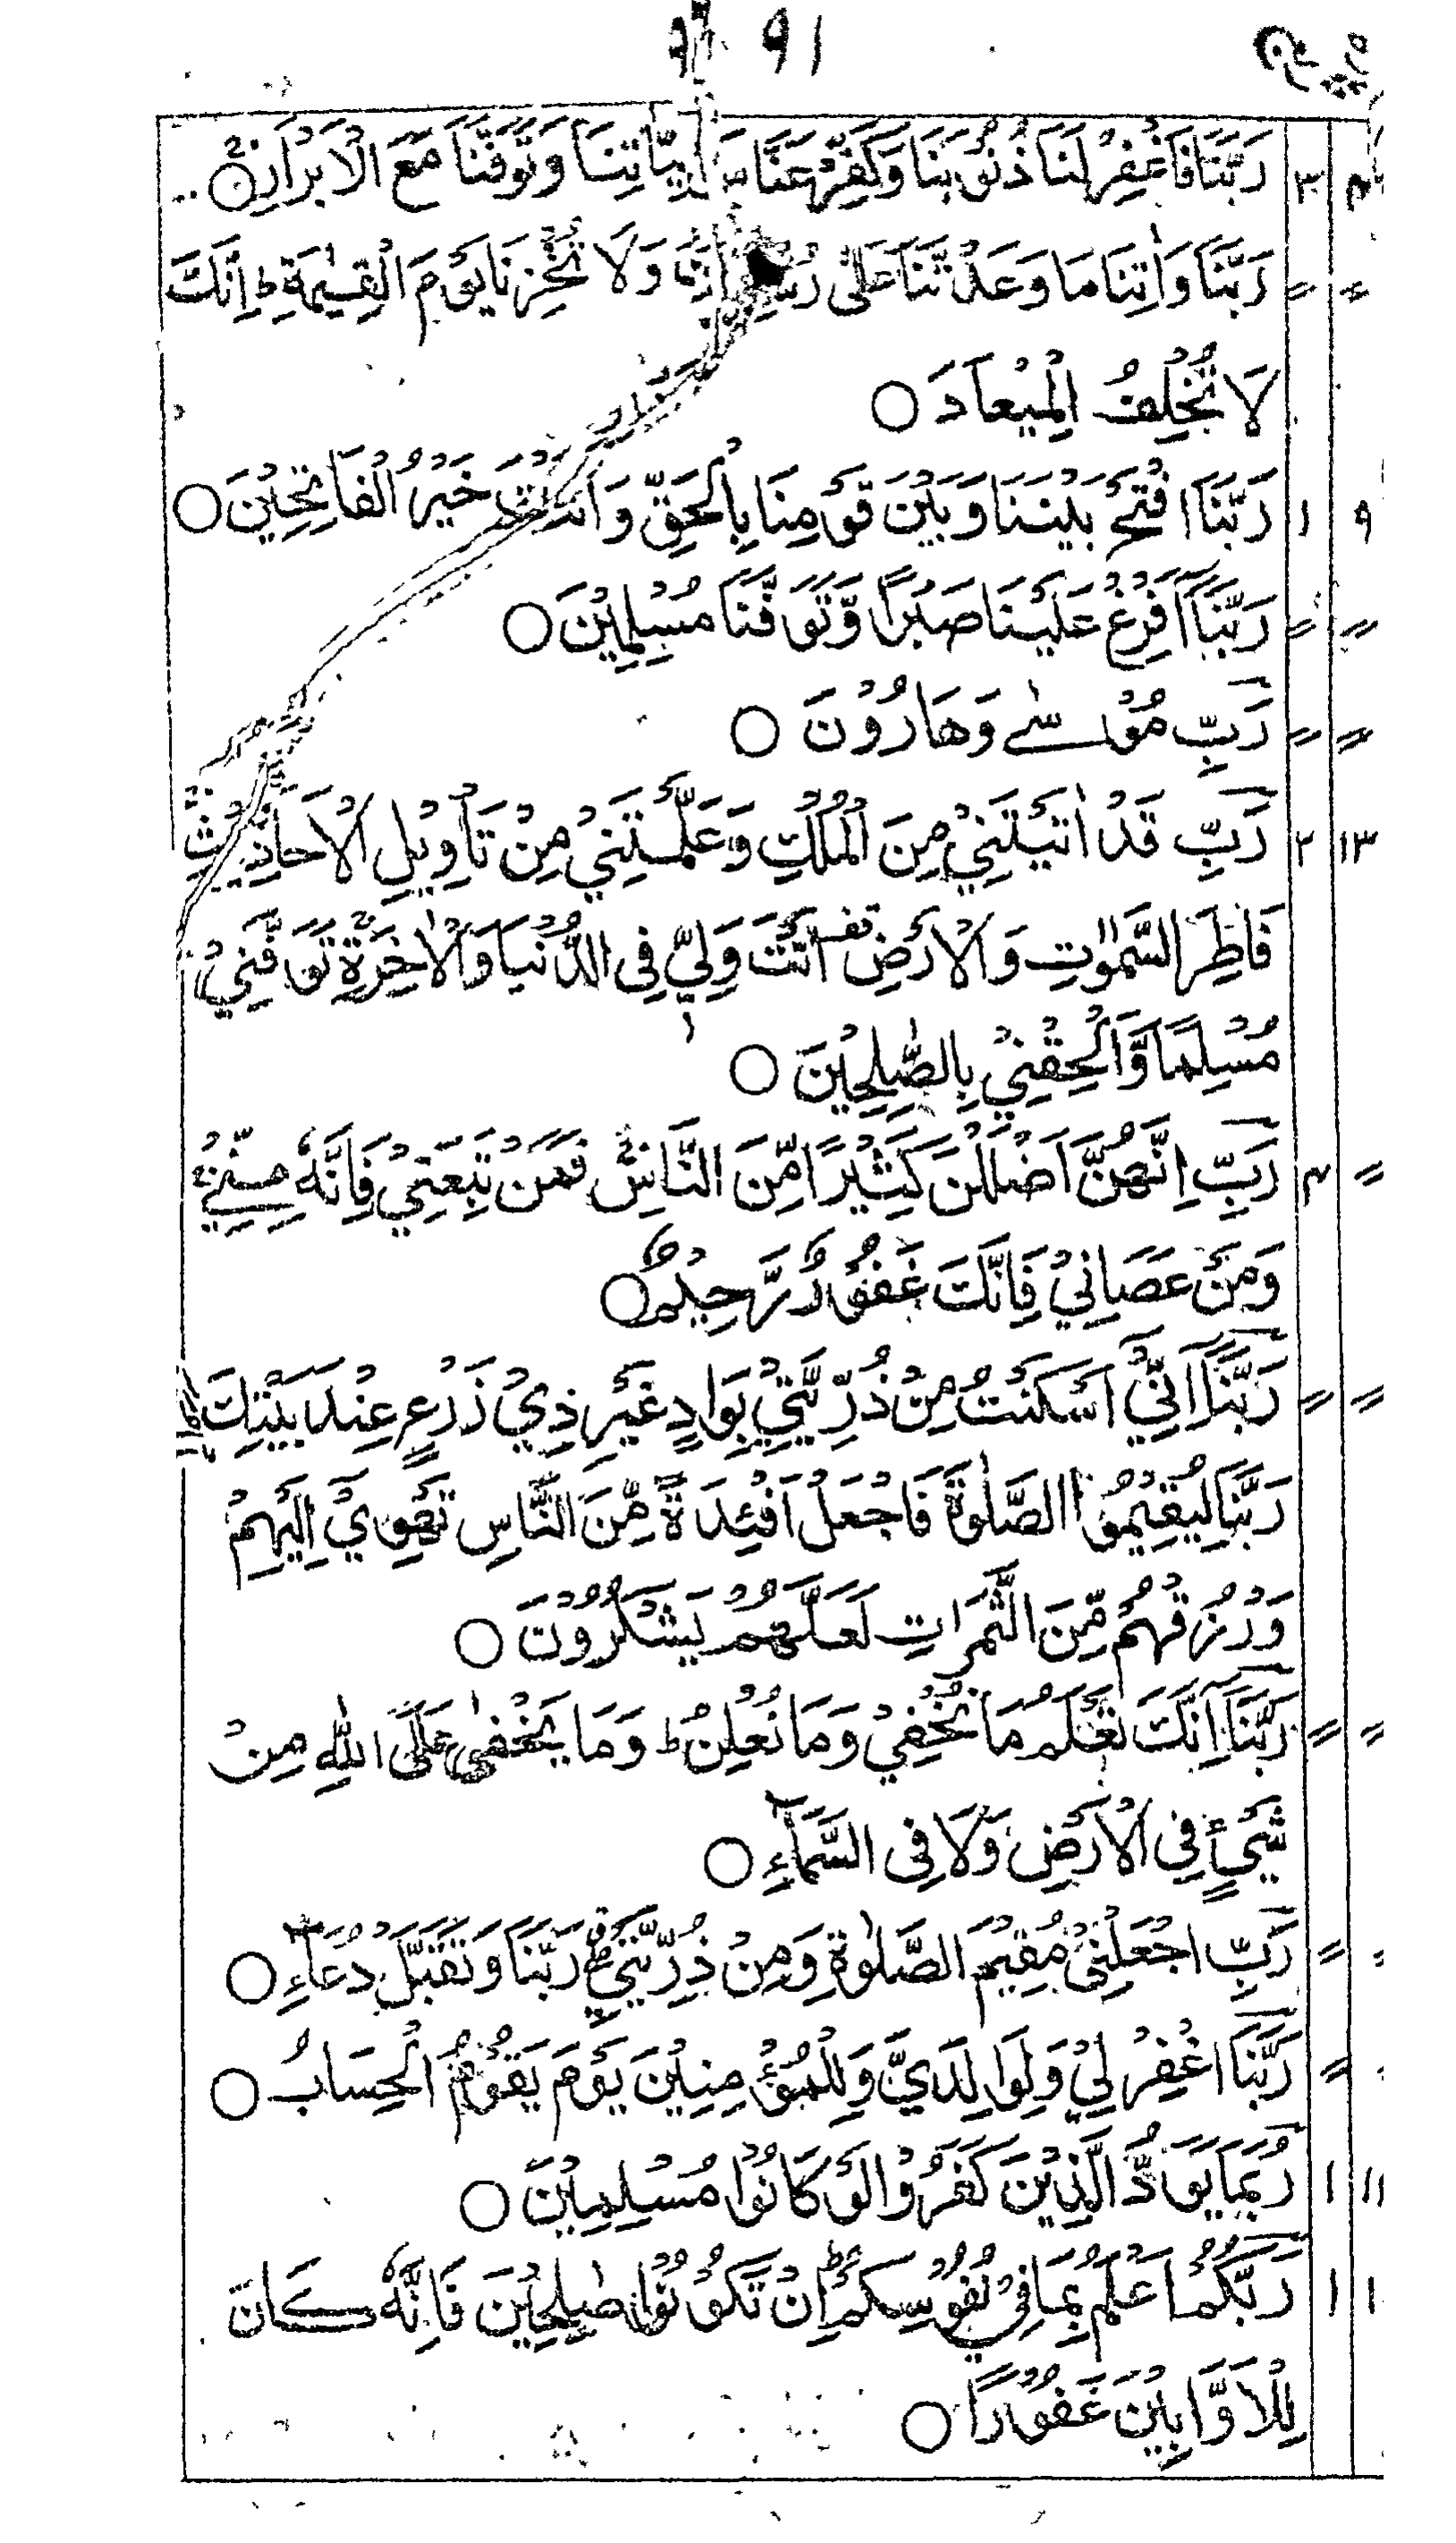 ٩١
رَبَّنَا فَاغْفِرْ لَنَا ذُنُوْبَنَا وَكَفِّرْ عَنَّا سَيِّاٰتِنَا وَتَوَفَّنَا مَعَ الْاَبْرَارِ ○ ٣
رَبَّنَا وَاٰتِنَا مَا وَعَدْتَّنَا عَلٰى رُسُلِكَ وَلَا تُخْزِنَا يَوْمَ الْقِيٰمَةِ ط اِنَّكَ
لَا تُخْلِفُ الْمِيْعَادَ ○
رَبَّنَا افْتَحْ بَيْنَنَا وَبَيْنَ قَوْمِنَا بِالْحَقِّ وَاَنْتَ خَيْرُ الْفَاتِحِيْنَ ○ ١ ٩
رَبَّنَا اَفْرِغْ عَلَيْنَا صَبْرًا وَّتَوَفَّنَا مُسْلِمِيْنَ ○
رَبِّ مُوْسٰے وَهَارُوْنَ ○
رَبِّ قَدْ اٰتَيْتَنِيْ مِنَ الْمُلْكِ وَعَلَّمْتَنِيْ مِنْ تَاْوِيْلِ الْاَحَادِيْثِ ٢ ١٣
فَاطِرَ السَّمٰوٰتِ وَالْاَرْضِ قف اَنْتَ وَلِيّٖ فِى الدُّنْيَا وَالْاٰخِرَةِ ج تَوَفَّنِيْ
مُسْلِمًا وَّاَلْحِقْنِيْ بِالصّٰلِحِيْنَ ○
رَبِّ اِنَّهُنَّ اَضْلَلْنَ كَثِيْرًا مِّنَ النَّاسِ ج فَمَنْ تَبِعَنِيْ فَاِنَّهٗ مِنِّيْ ج ٣
وَمَنْ عَصَانِيْ فَاِنَّكَ غَفُوْرٌ رَّحِيْمٌ ○
رَبَّنَا اِنِّيْ اَسْكَنْتُ مِنْ ذُرِّيَّتِيْ بِوَادٍ غَيْرِ ذِيْ زَرْعٍ عِنْدَ بَيْتِكَ
رَبَّنَا لِيُقِيْمُوا الصَّلٰوةَ فَاجْعَلْ اَفْئِدَةً مِّنَ النَّاسِ تَهْوِيْ اِلَيْهِمْ
وَرْزُقْهُمْ مِّنَ الثَّمَرَاتِ لَعَلَّهُمْ يَشْكُرُوْنَ ○
رَبَّنَا اِنَّكَ تَعْلَمُ مَا نُخْفِيْ وَمَا نُعْلِنُ ط وَمَا يَخْفٰى عَلَى اللّٰهِ مِنْ
شَيْءٍ فِى الْاَرْضِ وَلَا فِى السَّمَآءِ ○
رَبِّ اجْعَلْنِيْ مُقِيْمَ الصَّلٰوةِ وَمِنْ ذُرِّيَّتِيْ رَبَّنَا وَتَقَبَّلْ دُعَآءِ ○
رَبَّنَا اغْفِرْ لِيْ وَلِوَالِدَيَّ وَلِلْمُؤْمِنِيْنَ يَوْمَ يَقُوْمُ الْحِسَابُ ○
رُبَمَا يَوَدُّ الَّذِيْنَ كَفَرُوْا لَوْ كَانُوْا مُسْلِمِيْنَ ○ ١
رَبُّكُمْ اَعْلَمُ بِمَا فِيْ نُفُوْسِكُمْ ط اِنْ تَكُوْنُوْا صٰلِحِيْنَ فَاِنَّهٗ كَانَ ١
لِلْاَوَّابِيْنَ غَفُوْرًا ○